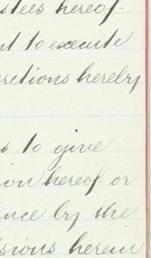 stees hereof
nt to execute
cretions hereby
s to give
ion hereof or
nce by the
isions herein